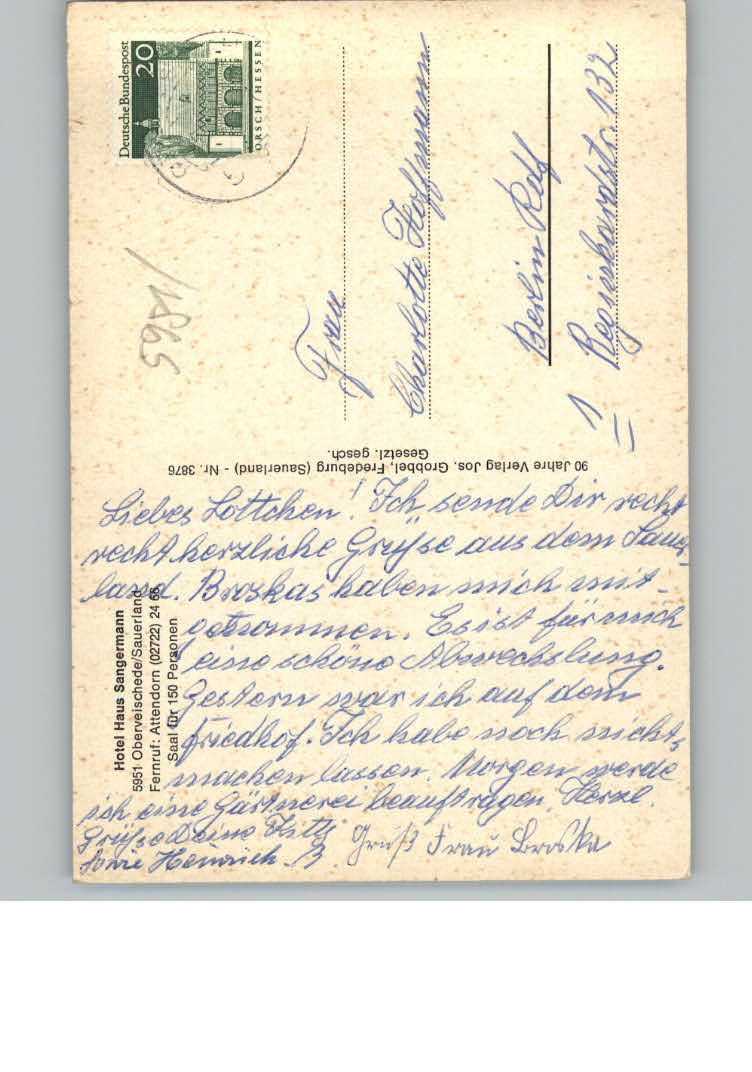 Deutsche Bundespost
20
LORSCH/HESSEN
5951/
Frau
Charlotte Hoffmann
Berlin Rdf
1
Regienhardstr. 132
90 Jahre Verlag Jos. Grobbel, Fredeburg (Sauerland) - Nr. 3876
Gesetzl. gesch.
Hotel Haus Sangermann
5951 Oberveischede/Sauerland
Fernruf: Attendorn (02722) 24 66
Saal für 150 Personen
Liebes Lottchen! Ich sende Dir recht
recht herzliche Grüße aus dem Sauer-
land. Broskas haben mich mit-
genommen. Es ist für mich
eine schöne Abwechslung.
Gestern war ich auf dem
Friedhof. Ich habe noch nichts
machen lassen. Morgen werde
ich eine Gärtnerei beauftragen. Herzl.
Grüße Deine
Heinrich
Gruß Frau Broska